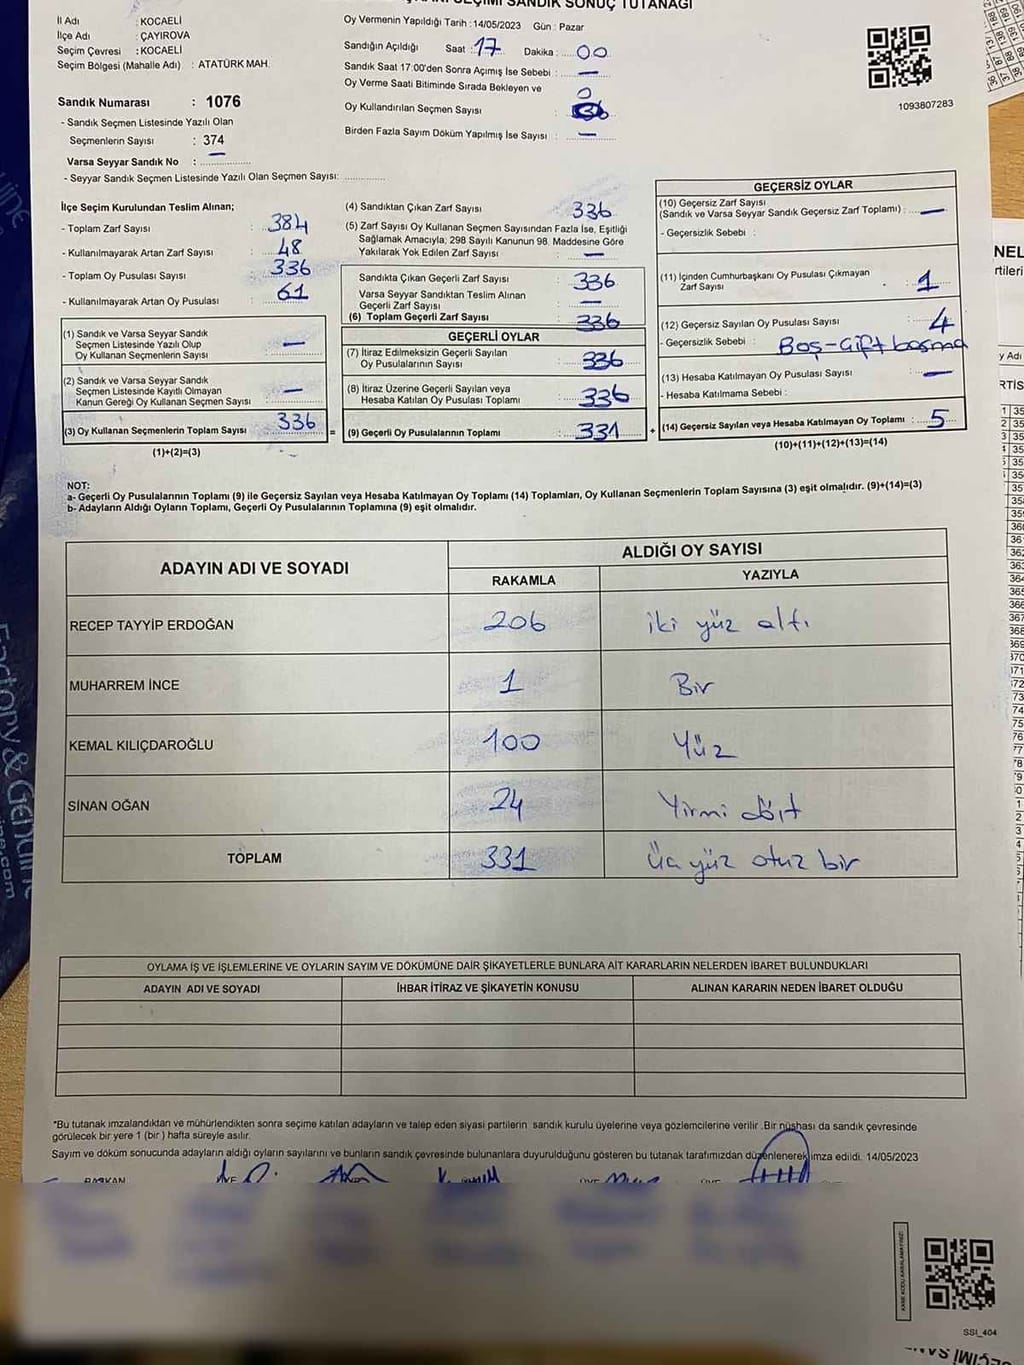 SEÇİMİ SANDIK SONUÇ TUTANAĞI
İl Adı : KOCAELİ
İlçe Adı : ÇAYIROVA
Seçim Çevresi : KOCAELİ
Seçim Bölgesi (Mahalle Adı) : ATATÜRK MAH.
Sandık Numarası : 1076
- Sandık Seçmen Listesinde Yazılı Olan
Seçmenlerin Sayısı : 374
Varsa Seyyar Sandık No : —
- Seyyar Sandık Seçmen Listesinde Yazılı Olan Seçmen Sayısı: ............
Oy Vermenin Yapıldığı Tarih : 14/05/2023 Gün : Pazar
Sandığın Açıldığı Saat : 17 Dakika : 00
Sandık Saat 17:00'den Sonra Açımış İse Sebebi : —
Oy Verme Saati Bitiminde Sırada Bekleyen ve
Oy Kullandırılan Seçmen Sayısı : 0
Birden Fazla Sayım Döküm Yapılmış İse Sayısı : —
1093807283
İlçe Seçim Kurulundan Teslim Alınan;
- Toplam Zarf Sayısı : 384
- Kullanılmayarak Artan Zarf Sayısı : 48
- Toplam Oy Pusulası Sayısı : 336
- Kullanılmayarak Artan Oy Pusulası : 61
(1) Sandık ve Varsa Seyyar Sandık
Seçmen Listesinde Yazılı Olup
Oy Kullanan Seçmenlerin Sayısı : —
(2) Sandık ve Varsa Seyyar Sandık
Seçmen Listesinde Kayıtlı Olmayan
Kanun Gereği Oy Kullanan Seçmen Sayısı : —
(3) Oy Kullanan Seçmenlerin Toplam Sayısı : 336 =
(1)+(2)=(3)
(4) Sandıktan Çıkan Zarf Sayısı : 336
(5) Zarf Sayısı Oy Kullanan Seçmen Sayısından Fazla İse, Eşitliği
Sağlamak Amacıyla; 298 Sayılı Kanunun 98. Maddesine Göre
Yakılarak Yok Edilen Zarf Sayısı : —
Sandıkta Çıkan Geçerli Zarf Sayısı : 336
Varsa Seyyar Sandıktan Teslim Alınan
Geçerli Zarf Sayısı : —
(6) Toplam Geçerli Zarf Sayısı : 336
GEÇERLİ OYLAR
(7) İtiraz Edilmeksizin Geçerli Sayılan
Oy Pusulalarının Sayısı : 336
(8) İtiraz Üzerine Geçerli Sayılan veya
Hesaba Katılan Oy Pusulası Toplamı : 336
(9) Geçerli Oy Pusulalarının Toplamı : 331 +
GEÇERSİZ OYLAR
(10) Geçersiz Zarf Sayısı
(Sandık ve Varsa Seyyar Sandık Geçersiz Zarf Toplamı) : —
- Geçersizlik Sebebi :
(11) İçinden Cumhurbaşkanı Oy Pusulası Çıkmayan
Zarf Sayısı : 1
(12) Geçersiz Sayılan Oy Pusulası Sayısı : 4
- Geçersizlik Sebebi : Boş-Çift basma
(13) Hesaba Katılmayan Oy Pusulası Sayısı : —
- Hesaba Katılmama Sebebi :
(14) Geçersiz Sayılan veya Hesaba Katılmayan Oy Toplamı : 5
(10)+(11)+(12)+(13)=(14)
NOT:
a- Geçerli Oy Pusulalarının Toplamı (9) ile Geçersiz Sayılan veya Hesaba Katılmayan Oy Toplamı (14) Toplamları, Oy Kullanan Seçmenlerin Toplam Sayısına (3) eşit olmalıdır. (9)+(14)=(3)
b- Adayların Aldığı Oyların Toplamı, Geçerli Oy Pusulalarının Toplamına (9) eşit olmalıdır.
ADAYIN ADI VE SOYADI ALDIĞI OY SAYISI
RAKAMLA YAZIYLA
RECEP TAYYİP ERDOĞAN 206 iki yüz altı
MUHARREM İNCE 1 Bir
KEMAL KILIÇDAROĞLU 100 Yüz
SİNAN OĞAN 24 Yirmi dört
TOPLAM 331 Üç yüz otuz bir
OYLAMA İŞ VE İŞLEMLERİNE VE OYLARIN SAYIM VE DÖKÜMÜNE DAİR ŞİKAYETLERLE BUNLARA AİT KARARLARIN NELERDEN İBARET BULUNDUKLARI
ADAYIN ADI VE SOYADI İHBAR İTİRAZ VE ŞİKAYETİN KONUSU ALINAN KARARIN NEDEN İBARET OLDUĞU
*Bu tutanak imzalandıktan ve mühürlendikten sonra seçime katılan adayların ve talep eden siyasi partilerin sandık kurulu üyelerine veya gözlemcilerine verilir .Bir nüshası da sandık çevresinde
görülecek bir yere 1 (bir ) hafta süreyle asılır.
Sayım ve döküm sonucunda adayların aldığı oyların sayılarını ve bunların sandık çevresinde bulunanlara duyurulduğunu gösteren bu tutanak tarafımızdan düzenlenerek imza edildi. 14/05/2023
BAŞKAN
SSI_404